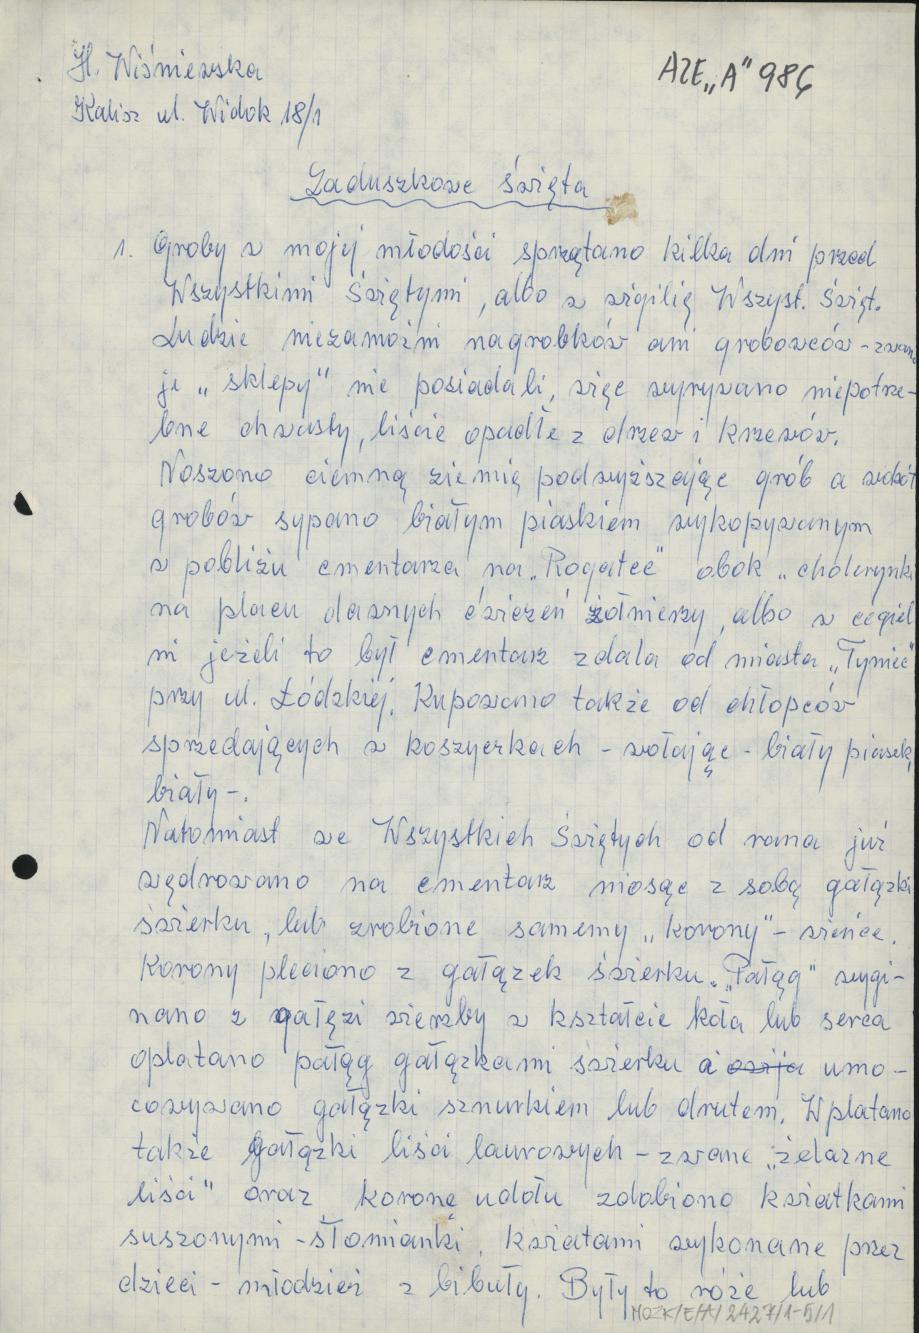 H. Wiśniewska
AZE „A" 986
Kalisz ul. Widok 18/1
Zaduszkowe święta
1. Groby w mojej młodości sprzątano kilka dni przed
Wszystkimi Świętymi, albo w wigilię Wszyst. Święt.
Ludzie niezamożni nagrobków ani grobowców - zwano
je „sklepy" nie posiadali, więc wyrywano niepotrze-
bne chwasty, liście opadłe z drzew i krzewów.
Noszono ciemną ziemię podwyższając grób a wokół
grobów sypano białym piaskiem wykopywanym
w pobliżu cmentarza na „Rogatce" obok „cholerynki
na placu dawnych ćwiczeń żołnierzy, albo w cegiel
ni jeżeli to był cmentarz zdala od miasta „Tyniec"
przy ul. Łódzkiej. Kupowano także od chłopców
sprzedających w koszyczkach - wołając - biały piasek,
biały -.
Natomiast we Wszystkich Świętych od rana już
wędrowano na cmentarz niosąc z sobą gałązki
świerku, lub zrobione samemy „korony" - wieńce.
Korony pleciono z gałązek świerku. „Pałąg" wygi-
nano z gałęzi wierzby w kształcie koła lub serca
oplatano pałąg gałązkami świerku a owija umo-
cowywano gałązki sznurkiem lub drutem. Wplatano
także gałązki liści laurowych - zwane „żelazne
liści" oraz koronę udołu zdobiono kwiatkami
suszonymi - słomianki, kwiatami wykonane przez
dzieci - młodzież z bibuły. Były to róże lub
MOZK/E/A/2427/1-5/1